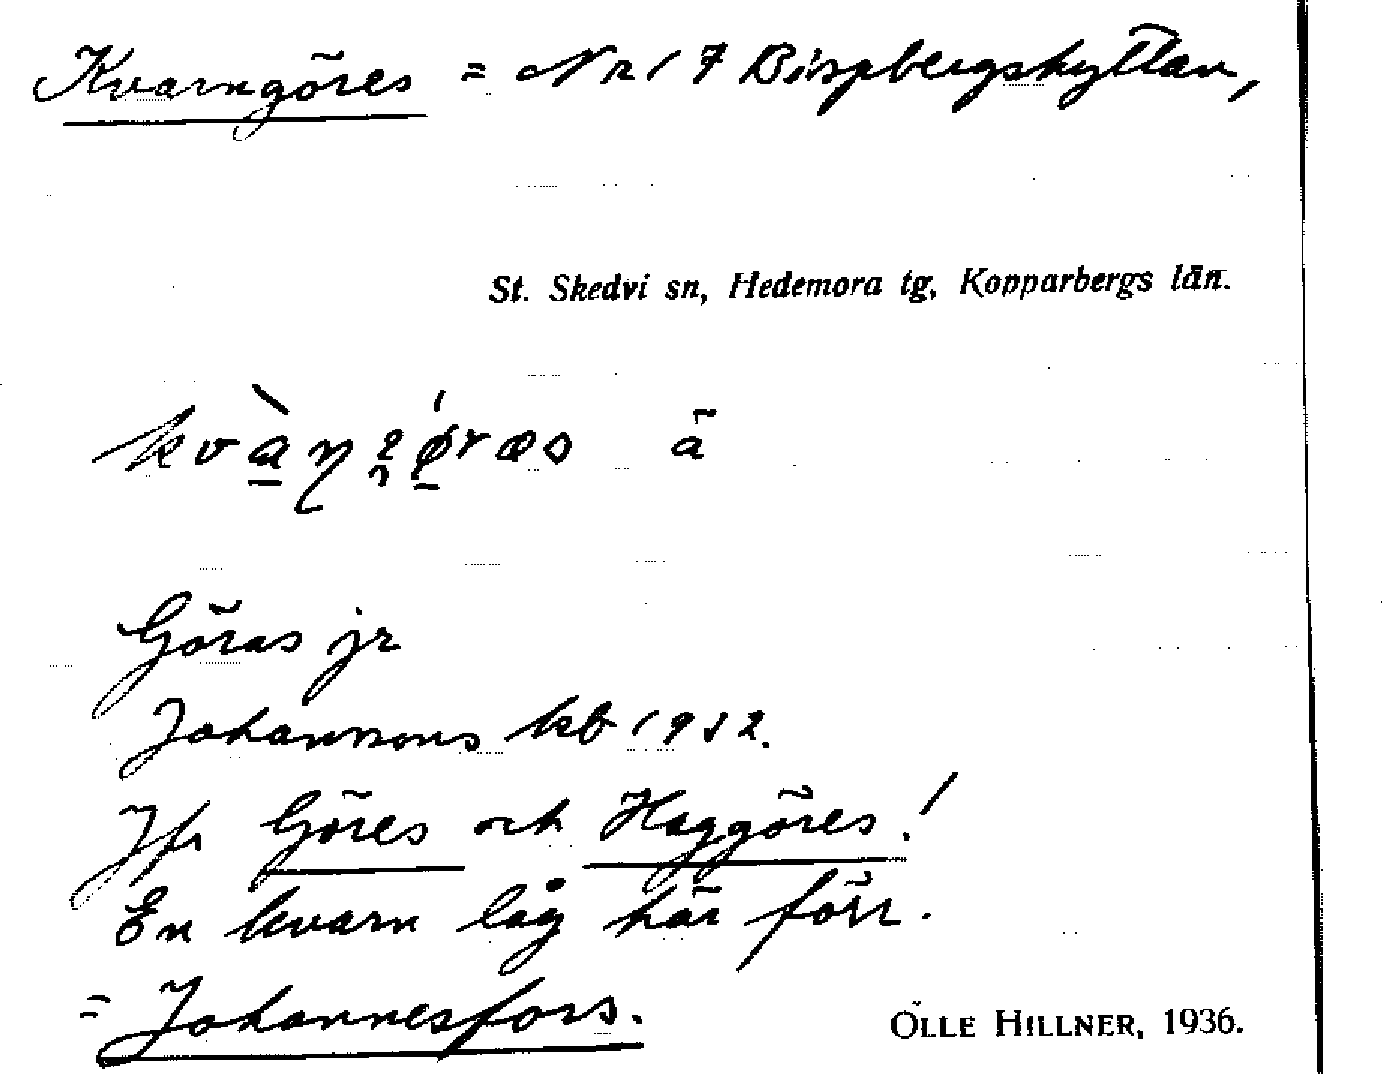 Kvarngöres = Nr 17 Bispbergshyttan,
St. Skedvi sn, Hedemora tg, Kopparbergs län.
ä
Göras jr
Johannsons kb 1912.
Jfr Göres och Haggöres!
En kvarn låg här förr.
= Johannesfors.
OLLE HILLNER, 1936.